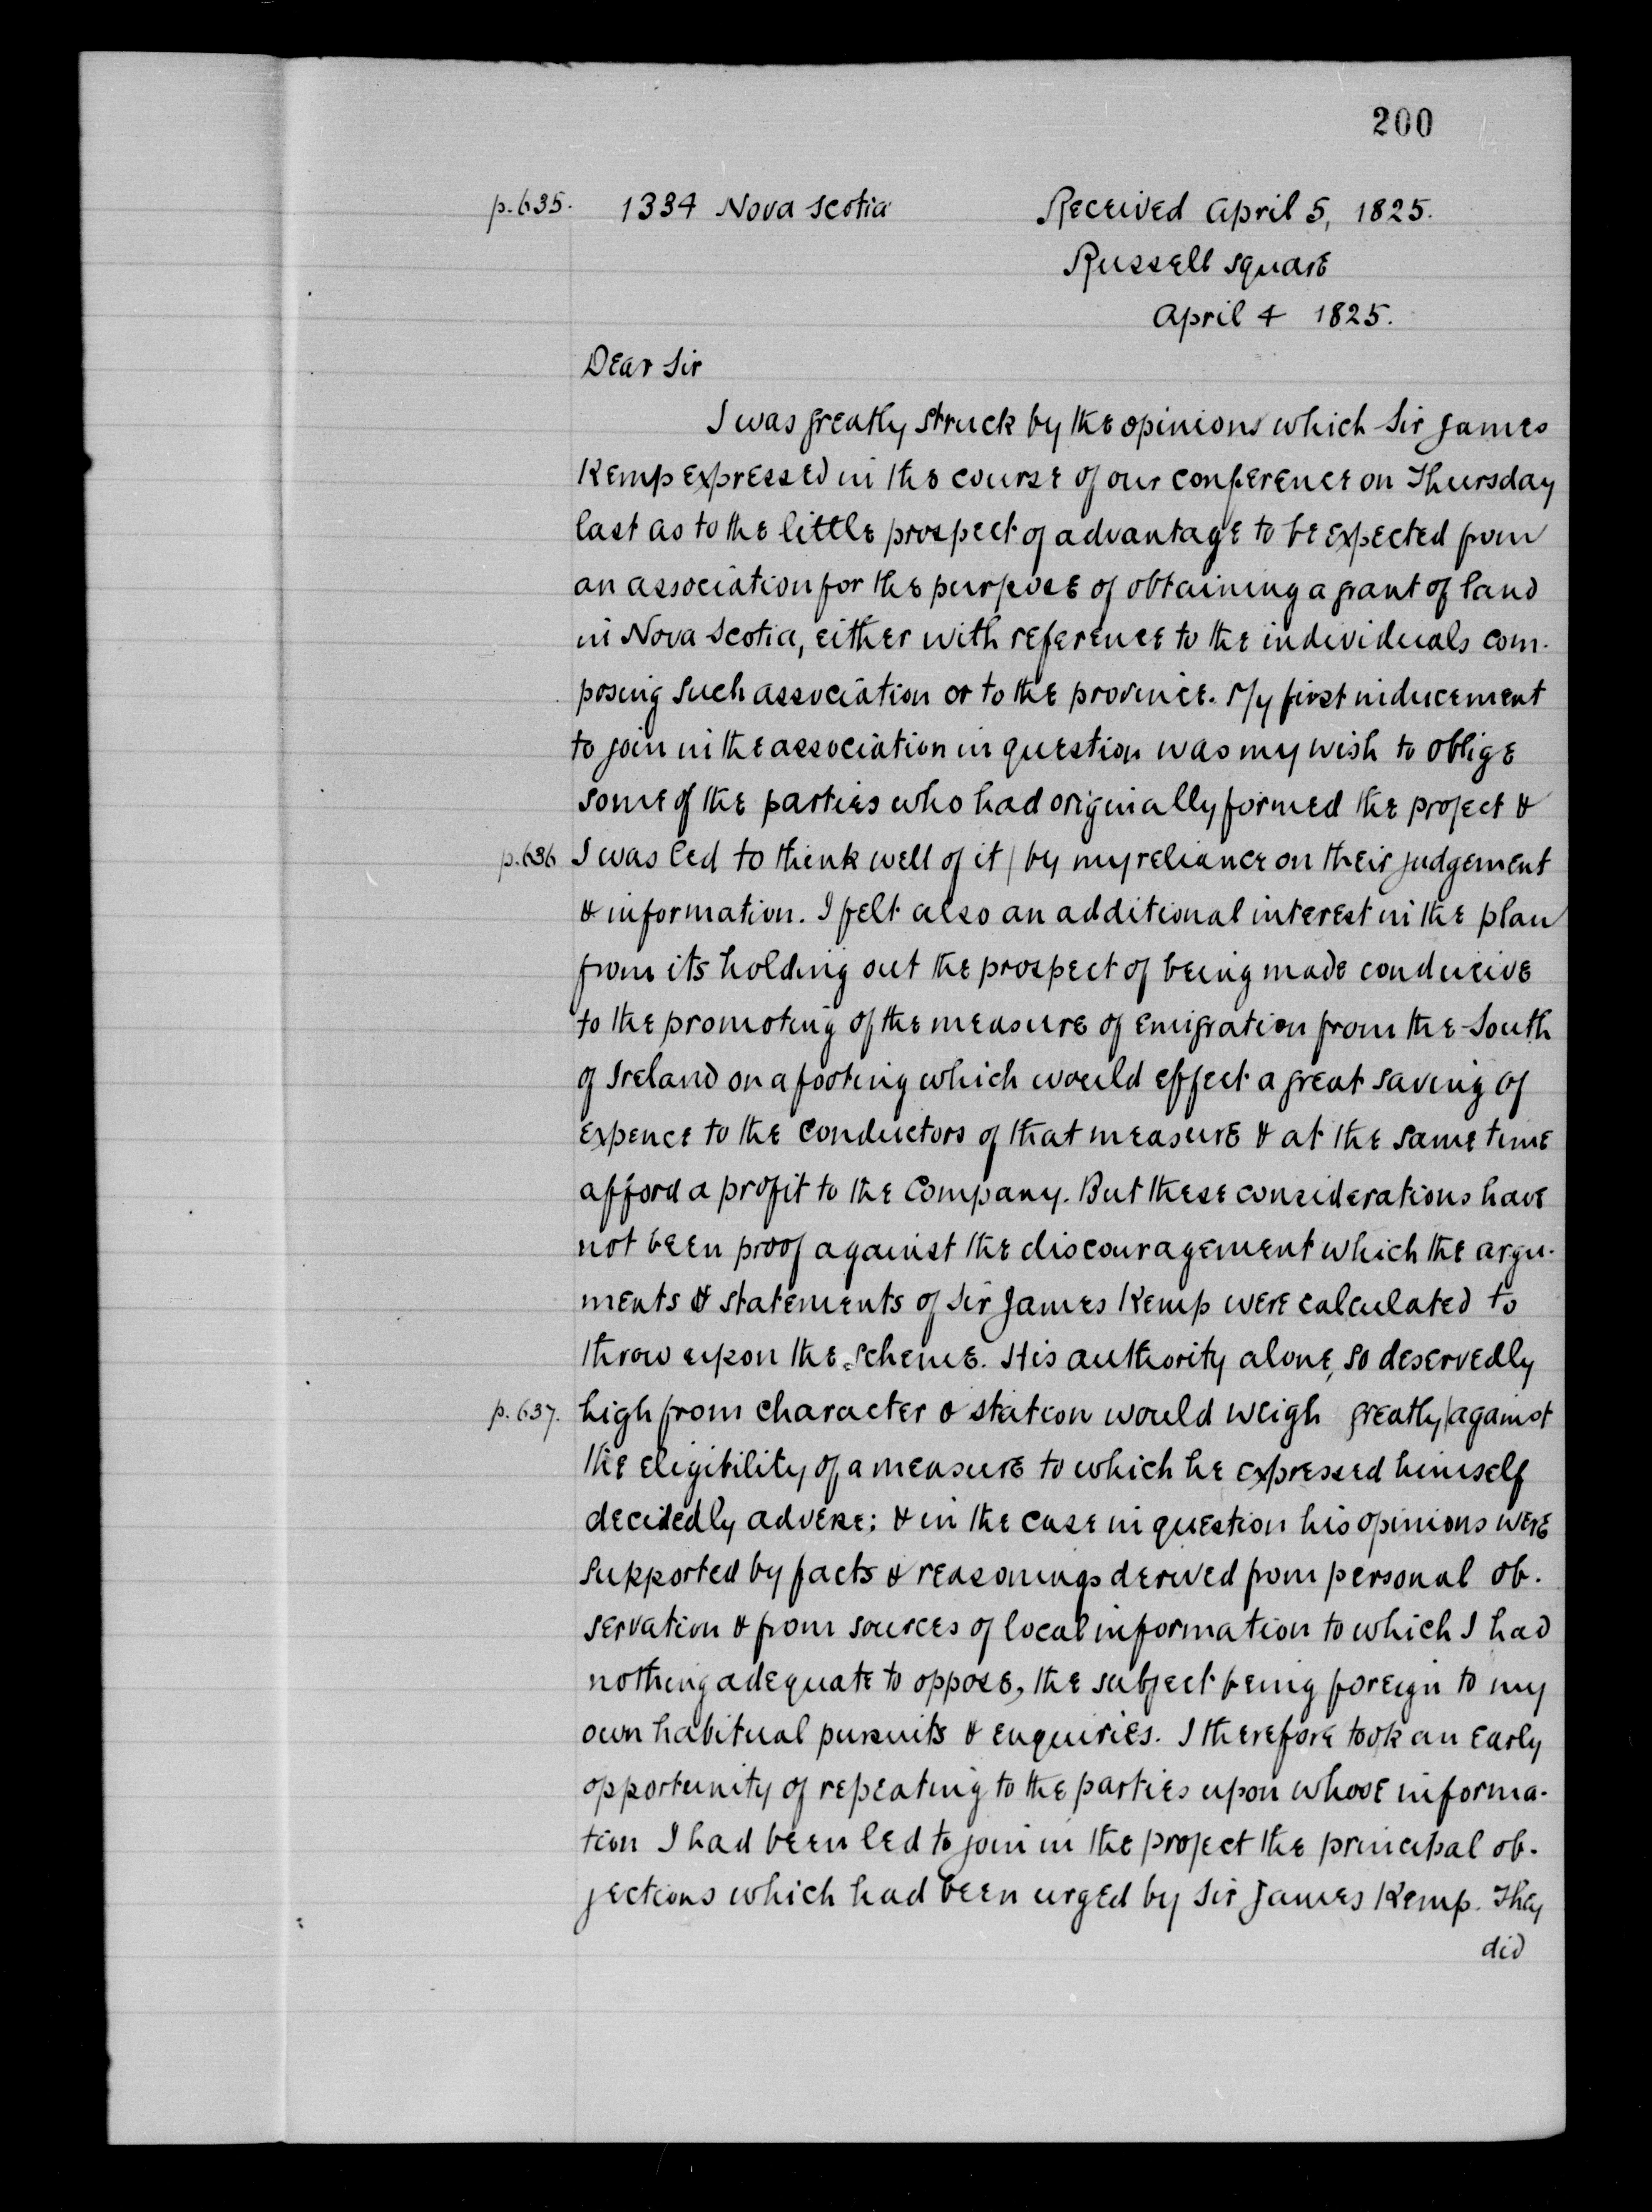 200
p.635. 1334 Nova Scotia Received April 5, 1825.
Russell Square
April 4 1825.
Dear Sir
I was greatly struck by the opinions which Sir James
Kemp expressed in the course of our conference on Thursday
last as to the little prospect of advantage to be expected from
an association for the purpose of obtaining a grant of land
in Nova Scotia, either with reference to the individuals com-
posing such association or to the province. My first inducement
to join in the association in question was my wish to oblige
some of the parties who had originally formed the project &
p.636 I was led to think well of it / by my reliance on their judgement
& information. I felt also an additional interest in the plan
from its holding out the prospect of being made conducive
to the promoting of the measure of emigration from the South
of Ireland on a footing which would effect a great saving of
expence to the conductors of that measure & at the same time
afford a profit to the Company. But these considerations have
not been proof against the discouragement which the argu-
ments & statements of Sir James Kemp were calculated to
throw upon the scheme. His authority alone, so deservedly
p.637. high from character & station would weigh greatly / against
the eligibility of a measure to which he expressed himself
decidedly adverse; & in the case in question his opinions were
supported by facts & reasonings derived from personal ob-
servation & from sources of local information to which I had
nothing adequate to oppose, the subject being foreign to my
own habitual pursuits & enquiries. I therefore took an early
opportunity of repeating to the parties upon whose informa-
tion I had been led to join in the project the principal ob-
jections which had been urged by Sir James Kemp. They
did